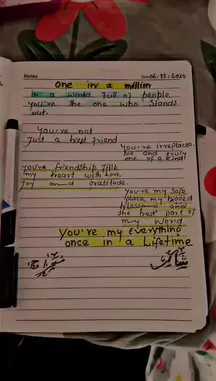 Notes
06.11.2023
One in a million
in a world full of people
you're the one who stands
out.
You're not
Just a best friend
You're irreplacea
ble and truly
one of a kind!
You're friendship fills
my heart with love
Joy and gratitude.
You're my safe
place, my biggest
blessing and
the best part of
my World
You're my Everything
once in a Lifetime